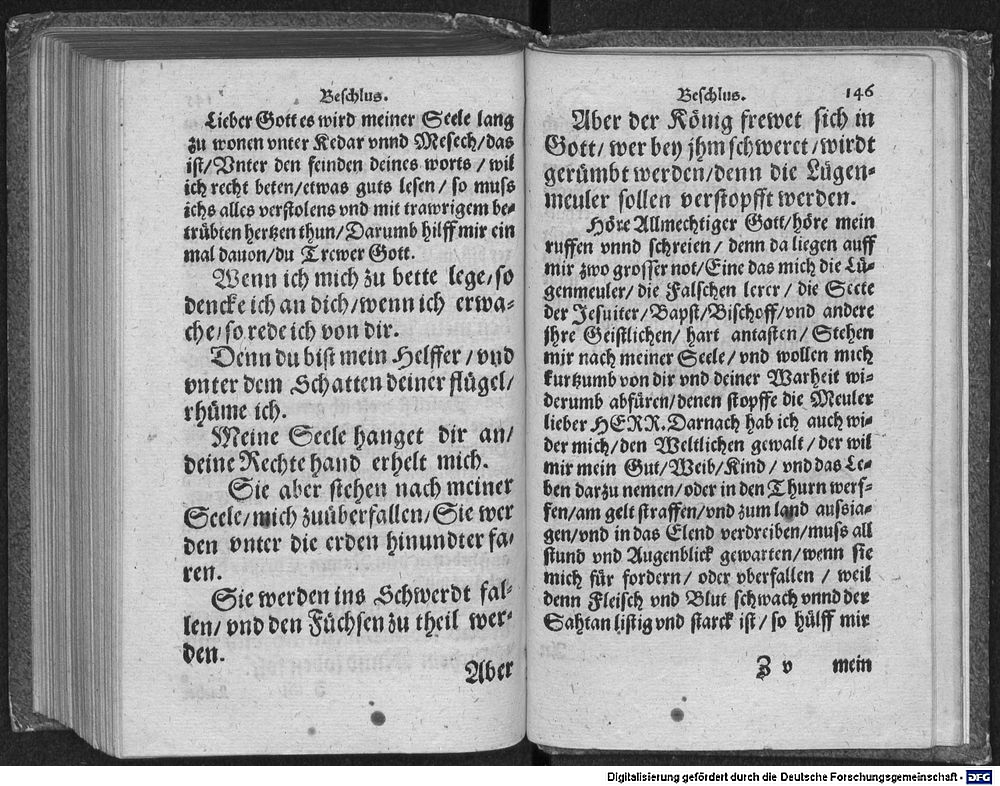 Beschlus.
Lieber Gott es wird meiner Seele lang
zu wonen vnter Kedar vnnd Mesech/das
ist/Vnter den feinden deines worts / wil
ich recht beten/etwas guts lesen / so muss
ichs alles verstolens vnd mit trawrigem be-
trübten hertzen thun/Darumb hilff mir ein
mal dauon/du Trewer Gott.
Wenn ich mich zu bette lege/so
dencke ich an dich/wenn ich erwa-
che/so rede ich von dir.
Denn du bist mein Helffer / vnd
vnter dem Schatten deiner flügel/
rhüme ich.
Meine Seele hanget dir an/
deine Rechte hand erhelt mich.
Sie aber stehen nach meiner
Seele/mich zuüberfallen/Sie wer
den vnter die erden hinundter fa-
ren.
Sie werden ins Schwerdt fal-
len/ vnd den Füchsen zu theil wer-
den.
Aber
Beschlus. 146
Aber der König frewet sich in
Gott/ wer bey jhm schweret/wirdt
gerümbt werden/denn die Lügen-
meuler sollen verstopfft werden.
Höre Allmechtiger Gott/höre mein
ruffen vnnd schreien / denn da liegen auff
mir zwo grosser not/Eine das mich die Lü-
genmeuler/ die Falschen lerer / die Secte
der Jesuiter/Bapst/Bischoff/vnd andere
jhre Geistlichen/ hart antasten/ Stehen
mir nach meiner Seele/ vnd wollen mich
kurtzumb von dir vnd deiner Warheit wi-
derumb abfüren/denen stopffe die Meuler
lieber HERR. Darnach hab ich auch wi-
der mich/den Weltlichen gewalt/ der wil
mir mein Gut/Weib/Kind / vnd das Le-
ben darzu nemen/oder in den Thurn werf-
fen/am gelt straffen/vnd zum land aussia-
gen/vnd in das Elend verdreiben/muss all
stund vnd Augenblick gewarten/wenn sie
mich für fordern/ oder vberfallen / weil
denn Fleisch vnd Blut schwach vnnd der
Sahtan listig vnd starck ist/ so hülff mir
Z v mein
Digitalisierung gefördert durch die Deutsche Forschungsgemeinschaft - DFG